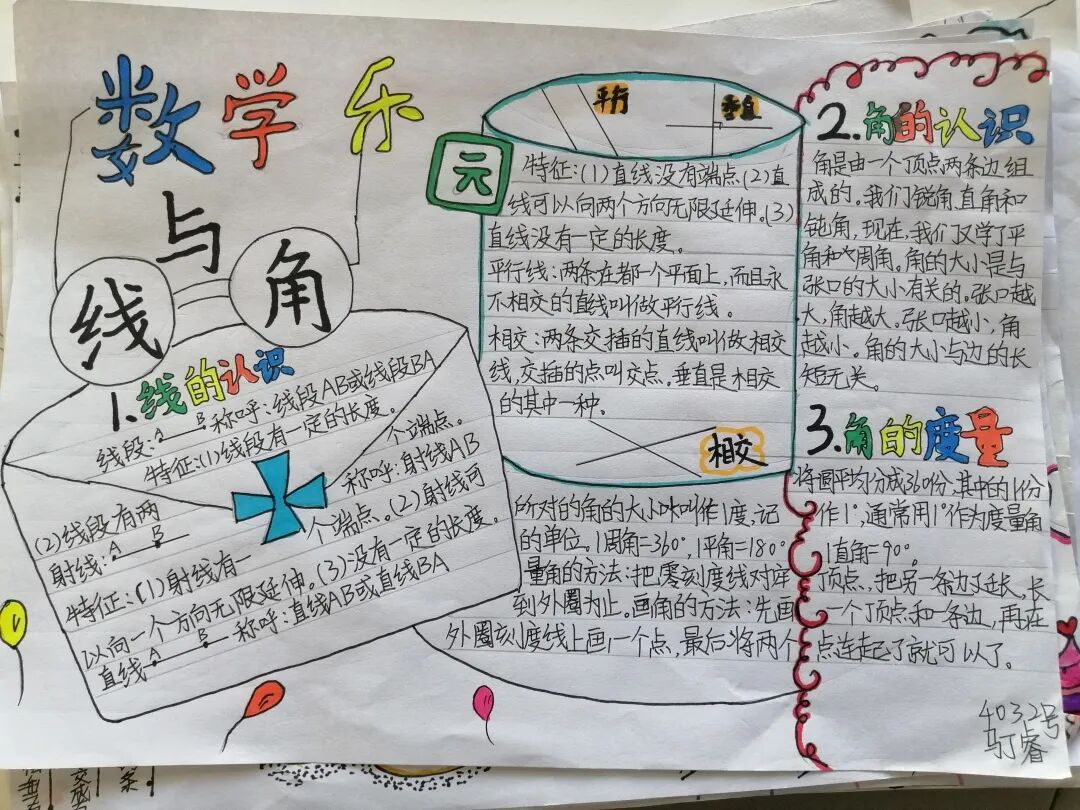 数学乐
园
与
线
角
1.线的认识
线段:A B 称呼:线段AB或线段BA
特征:(1)线段有一定的长度。
(2)线段有两个端点。
射线:A B 称呼:射线AB
特征:(1)射线有一个端点。(2)射线可
以向一个方向无限延伸。(3)没有一定的长度。
直线A B 称呼:直线AB或直线BA
平行
垂直
特征:(1)直线没有端点(2)直
线可以向两个方向无限延伸。(3)
直线没有一定的长度。
平行线:两条在都一个平面上,而且永
不相交的直线叫做平行线。
相交:两条交插的直线叫做相交
线,交插的点叫交点。垂直是相交
的其中一种。
相交
2.角的认识
角是由一个顶点两条边组
成的。我们锐角、直角和
钝角,现在,我们又学了平
角和周角。角的大小是与
张口的大小有关的。张口越
大,角越大。张口越小,角
越小。角的大小与边的长
短无关。
3.角的度量
将圆平均分成360份,其中的1份
所对的角的大小叫作1度,记作1°,通常用1°作为度量角
的单位。1周角=360°,1平角=180°1直角=90°
量角的方法:把零刻度线对准顶点,把另一条边延长,长
到外圈为止。画角的方法:先画一个顶点和一条边,再在
外圈刻度线上画一个点,最后将两个点连起了就可以了。
403,2号
马丁睿